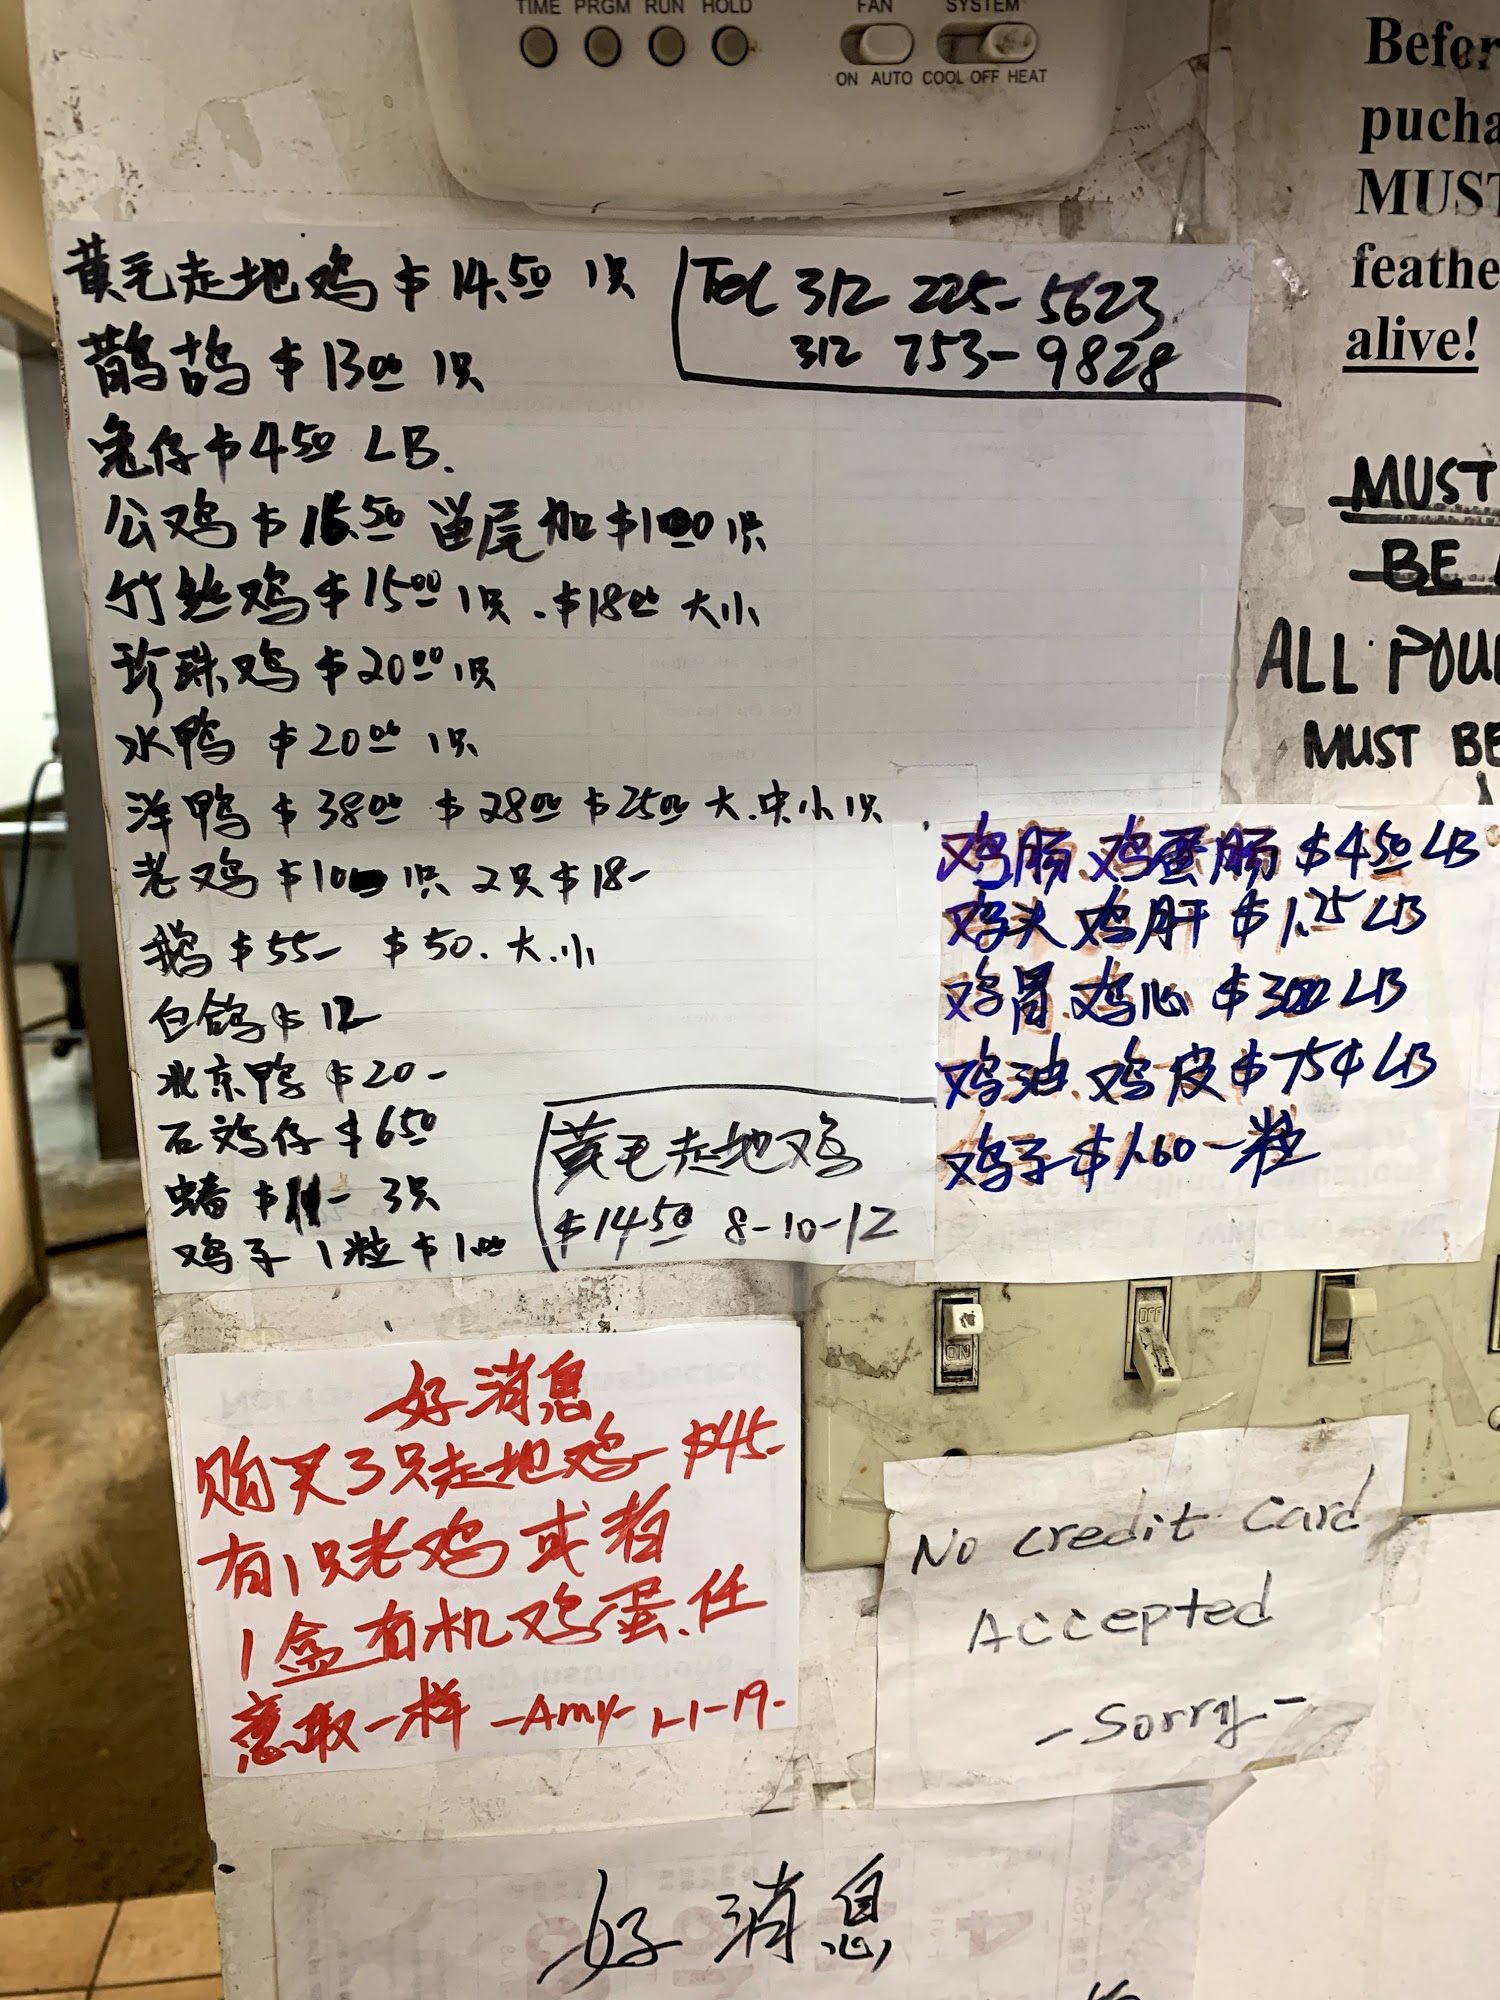 TIME PRGM RUN HOLD FAN SYSTEM
ON AUTO COOL OFF HEAT
黄毛走地鸡 $14.50 1只
Tel 312 225-5623
312 753-9828
鹧鸪 $13.00 1只
兔仔 $4.50 LB.
公鸡 $16.50 留尾加$1.00 1只
竹丝鸡 $15.00 1只 . $18.00 大小
珍珠鸡 $20.00 1只
水鸭 $20.00 1只
洋鸭 $38.00 $28.00 $25.00 大.中小 1只
老鸡 $10 1只 2只 $18-
鹅 $55- $50. 大.小
白鸽 $12
北京鸭 $20-
石鸡仔 $6.50
$11- 3只
鸡子 1粒 $1.00
黄毛走地鸡
$14.50 8-10-12
鸡肠.鸡蛋肠 $4.50 LB
鸡头 鸡肝 $1.25 LB
鸡胃.鸡心 $3.00 LB
鸡油.鸡皮 $75¢ LB
鸡子 $1.60 一粒
Before
MUST
alive!
MUST
BE
ALL
MUST BE
ON
OFF
好消息
购买3只走地鸡-$45-
有1只老鸡或者
1盒有机鸡蛋.任
意取一样 -Amy- 1-1-19-
No credit Card
Accepted
-Sorry-
好消息